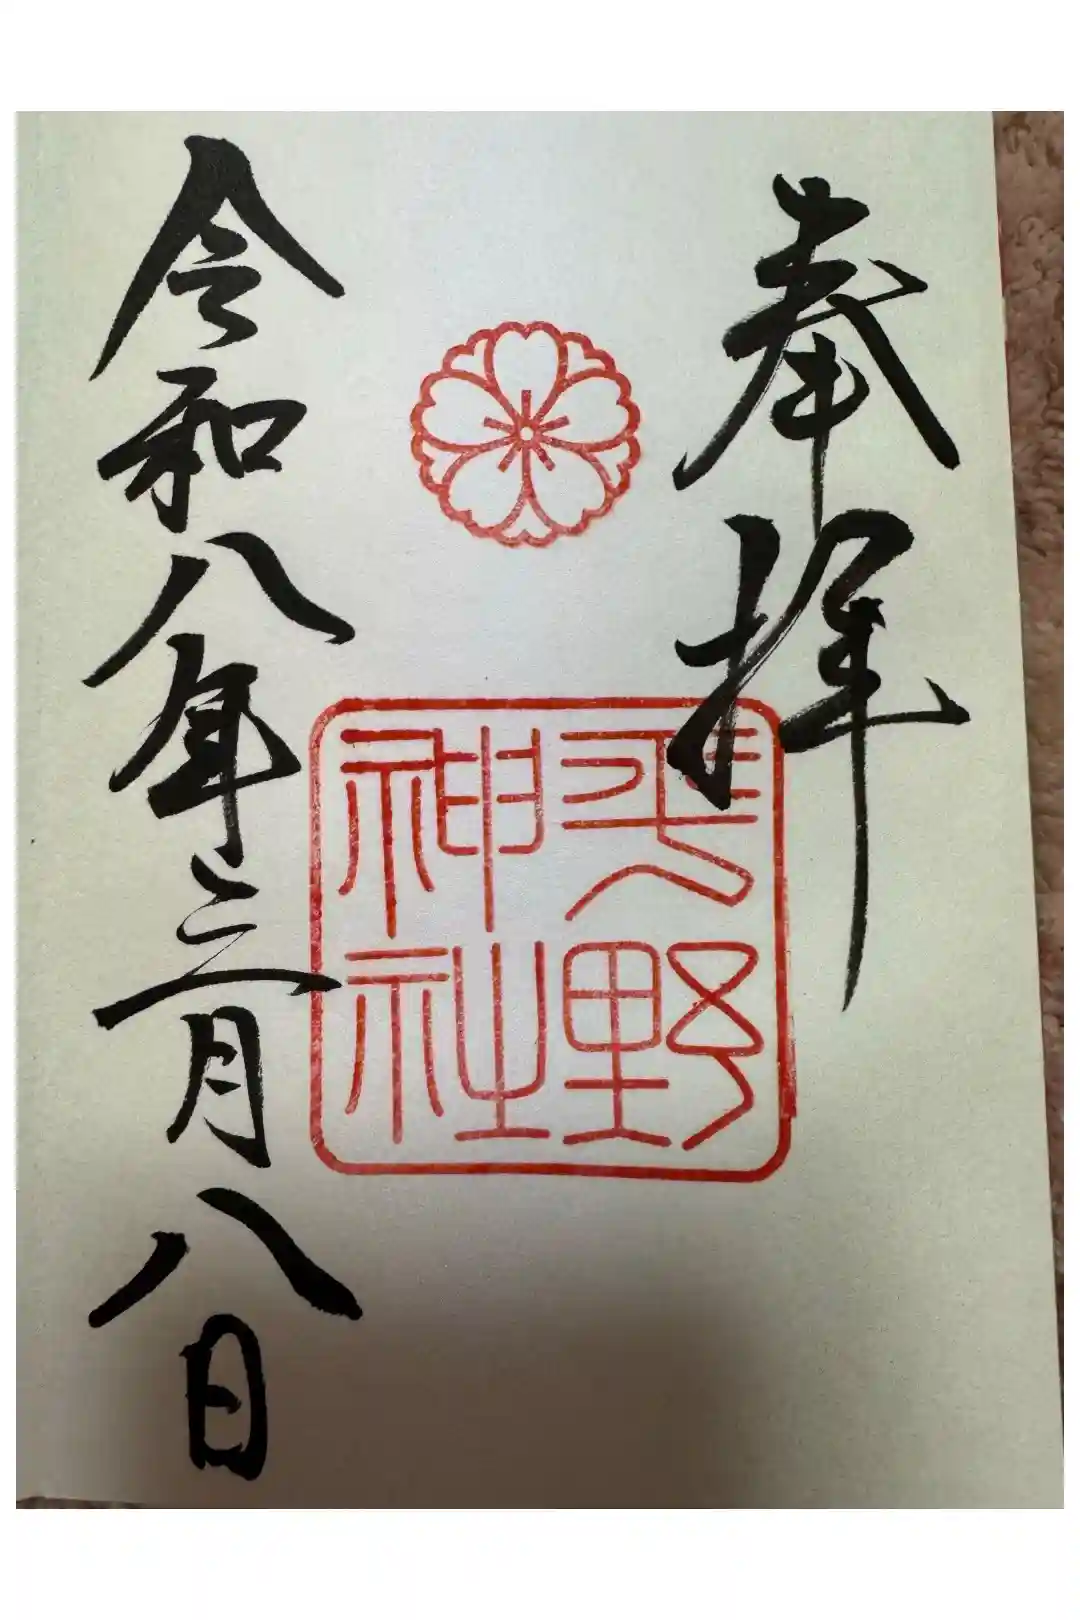 奉拝
平野神社
令和八年三月八日